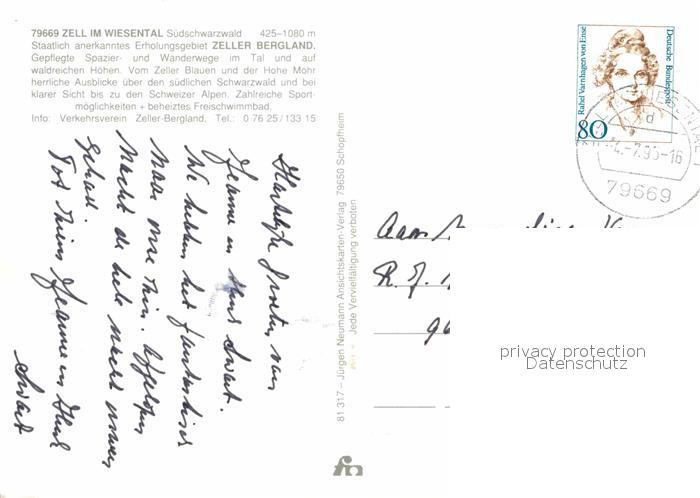 79669 ZELL IM WIESENTAL Südschwarzwald 425–1080 m
Staatlich anerkanntes Erholungsgebiet ZELLER BERGLAND.
Gepflegte Spazier- und Wanderwege im Tal und auf
waldreichen Höhen. Vom Zeller Blauen und der Hohe Möhr
herrliche Ausblicke über den südlichen Schwarzwald und bei
klarer Sicht bis zu den Schweizer Alpen. Zahlreiche Sport-
möglichkeiten + beheiztes Freischwimmbad.
Info: Verkehrsverein Zeller-Bergland, Tel.: 0 76 25 / 133 15
Hartelijke Groeten van
Jeanne en Henk Swart.
We hebben het fantastisch
maar onze
Nacht de hele nacht onweer
gehad.
Tot ziens Jeanne en Henk
Swart
81 317 – Jürgen Neumann Ansichtskarten-Verlag 79650 Schopfheim
Jede Vervielfältigung verboten
Rahel Varnhagen von Ense
Deutsche Bundespost
80
d
-7.95-16
79669
Aan
R. J.
privacy protection
Datenschutz